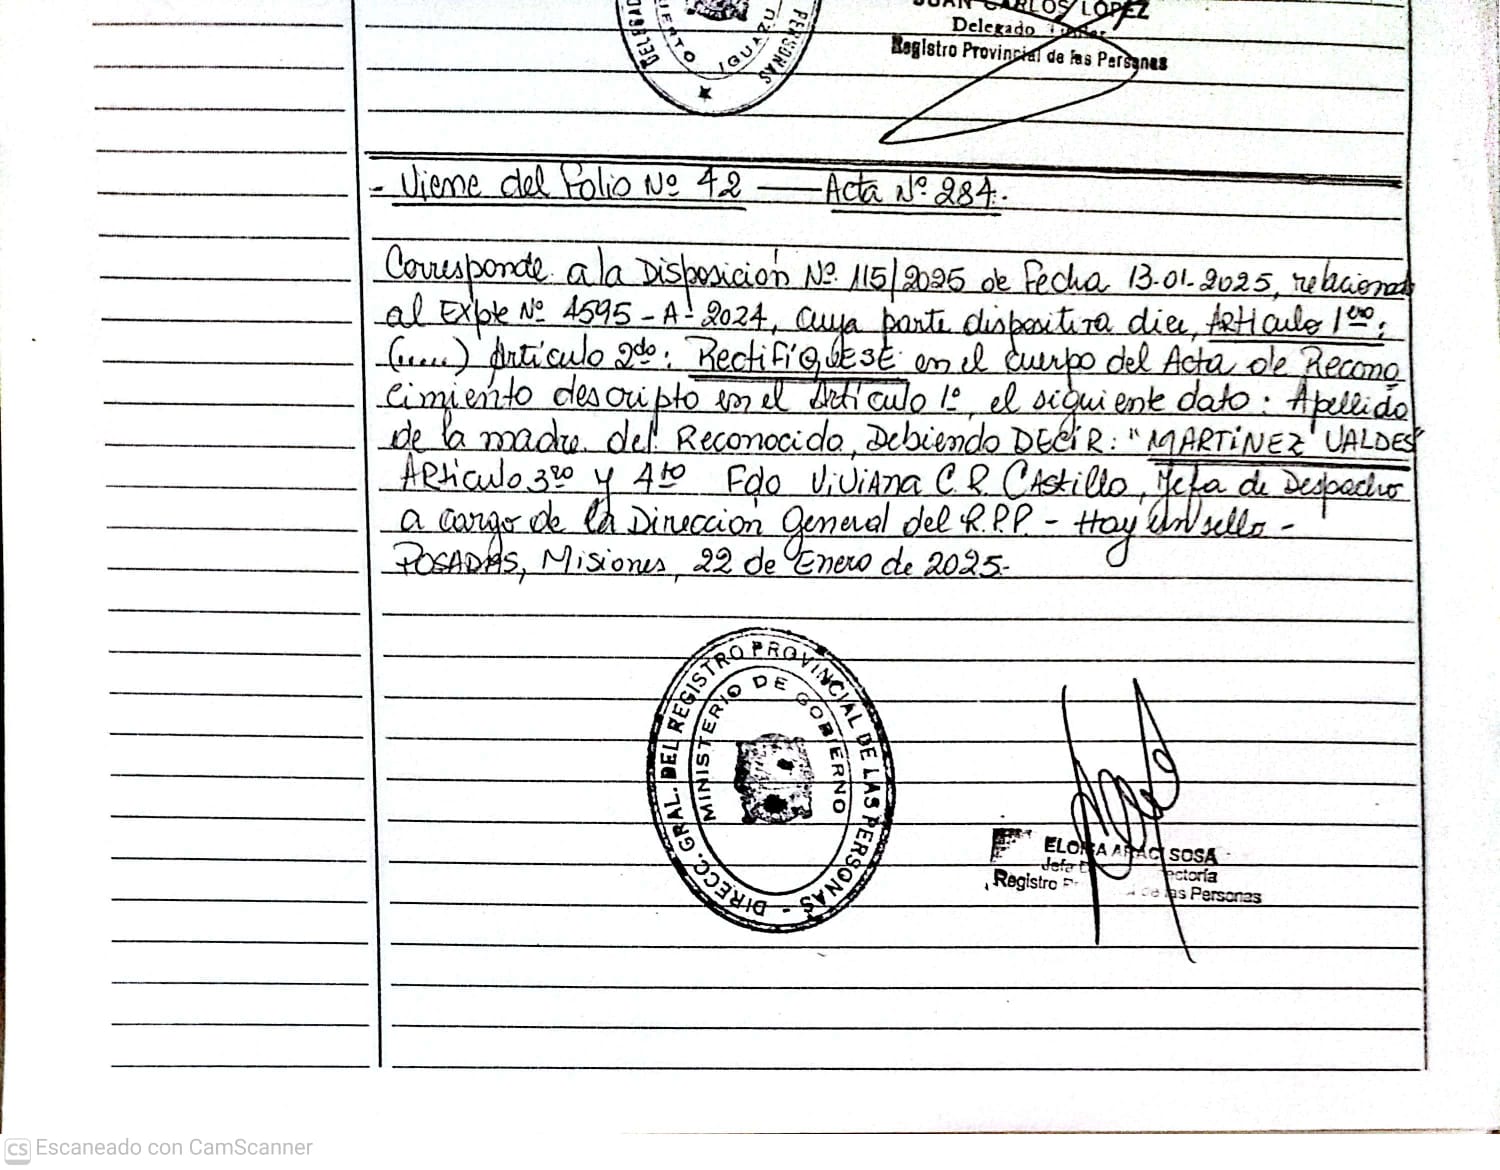 JUAN CARLOS LOPEZ
Delegado
Registro Provincial de las Personas
PUERTO IGUAZU
PERSONAS
- Viene del Folio Nº 42 — Acta Nº 284.-
Corresponde a la Disposición Nº 115/2025 de Fecha 13-01-2025, relacionado
al Expte Nº 4595-A-2024, cuya parte dispositiva dice, Artículo 1ero:
(.....) Artículo 2do: RECTIFÍQUESE en el cuerpo del Acta de Recono
cimiento descripto en el Artículo 1º, el siguiente dato: Apellido
de la madre del Reconocido, Debiendo DECIR: "MARTINEZ VALDES"
ARtículo 3ro y 4to Fdo ViViAna C.R. CAstillo, Jefa de Despacho
a cargo de la Dirección General del R.P.P. - Hay un sello -
POSADAS, Misiones, 22 de Enero de 2025.-
DIRECC. GRAL. DEL REGISTRO PROVINCIAL DE LAS PERSONAS -
MINISTERIO DE GOBIERNO
ELOISA ARACI SOSA
Jefa
Registro de las Personas
CS Escaneado con CamScanner